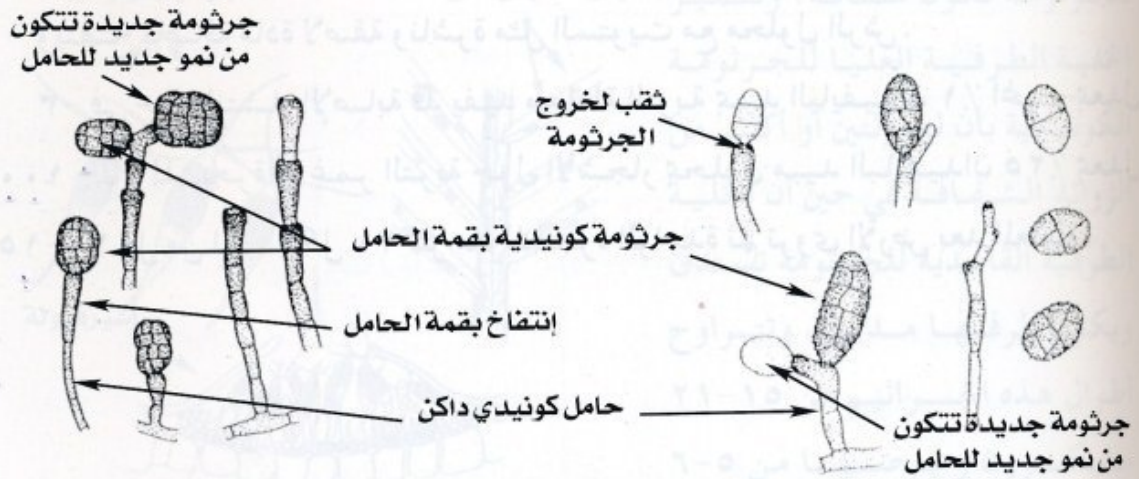 جرثومة جديدة تتكون
من نمو جديد للحامل
ثقب لخروج
الجرثومة
جرثومة كونيدية بقمة الحامل
إنتفاخ بقمة الحامل
حامل كونيدي داكن
جرثومة جديدة تتكون
من نمو جديد للحامل